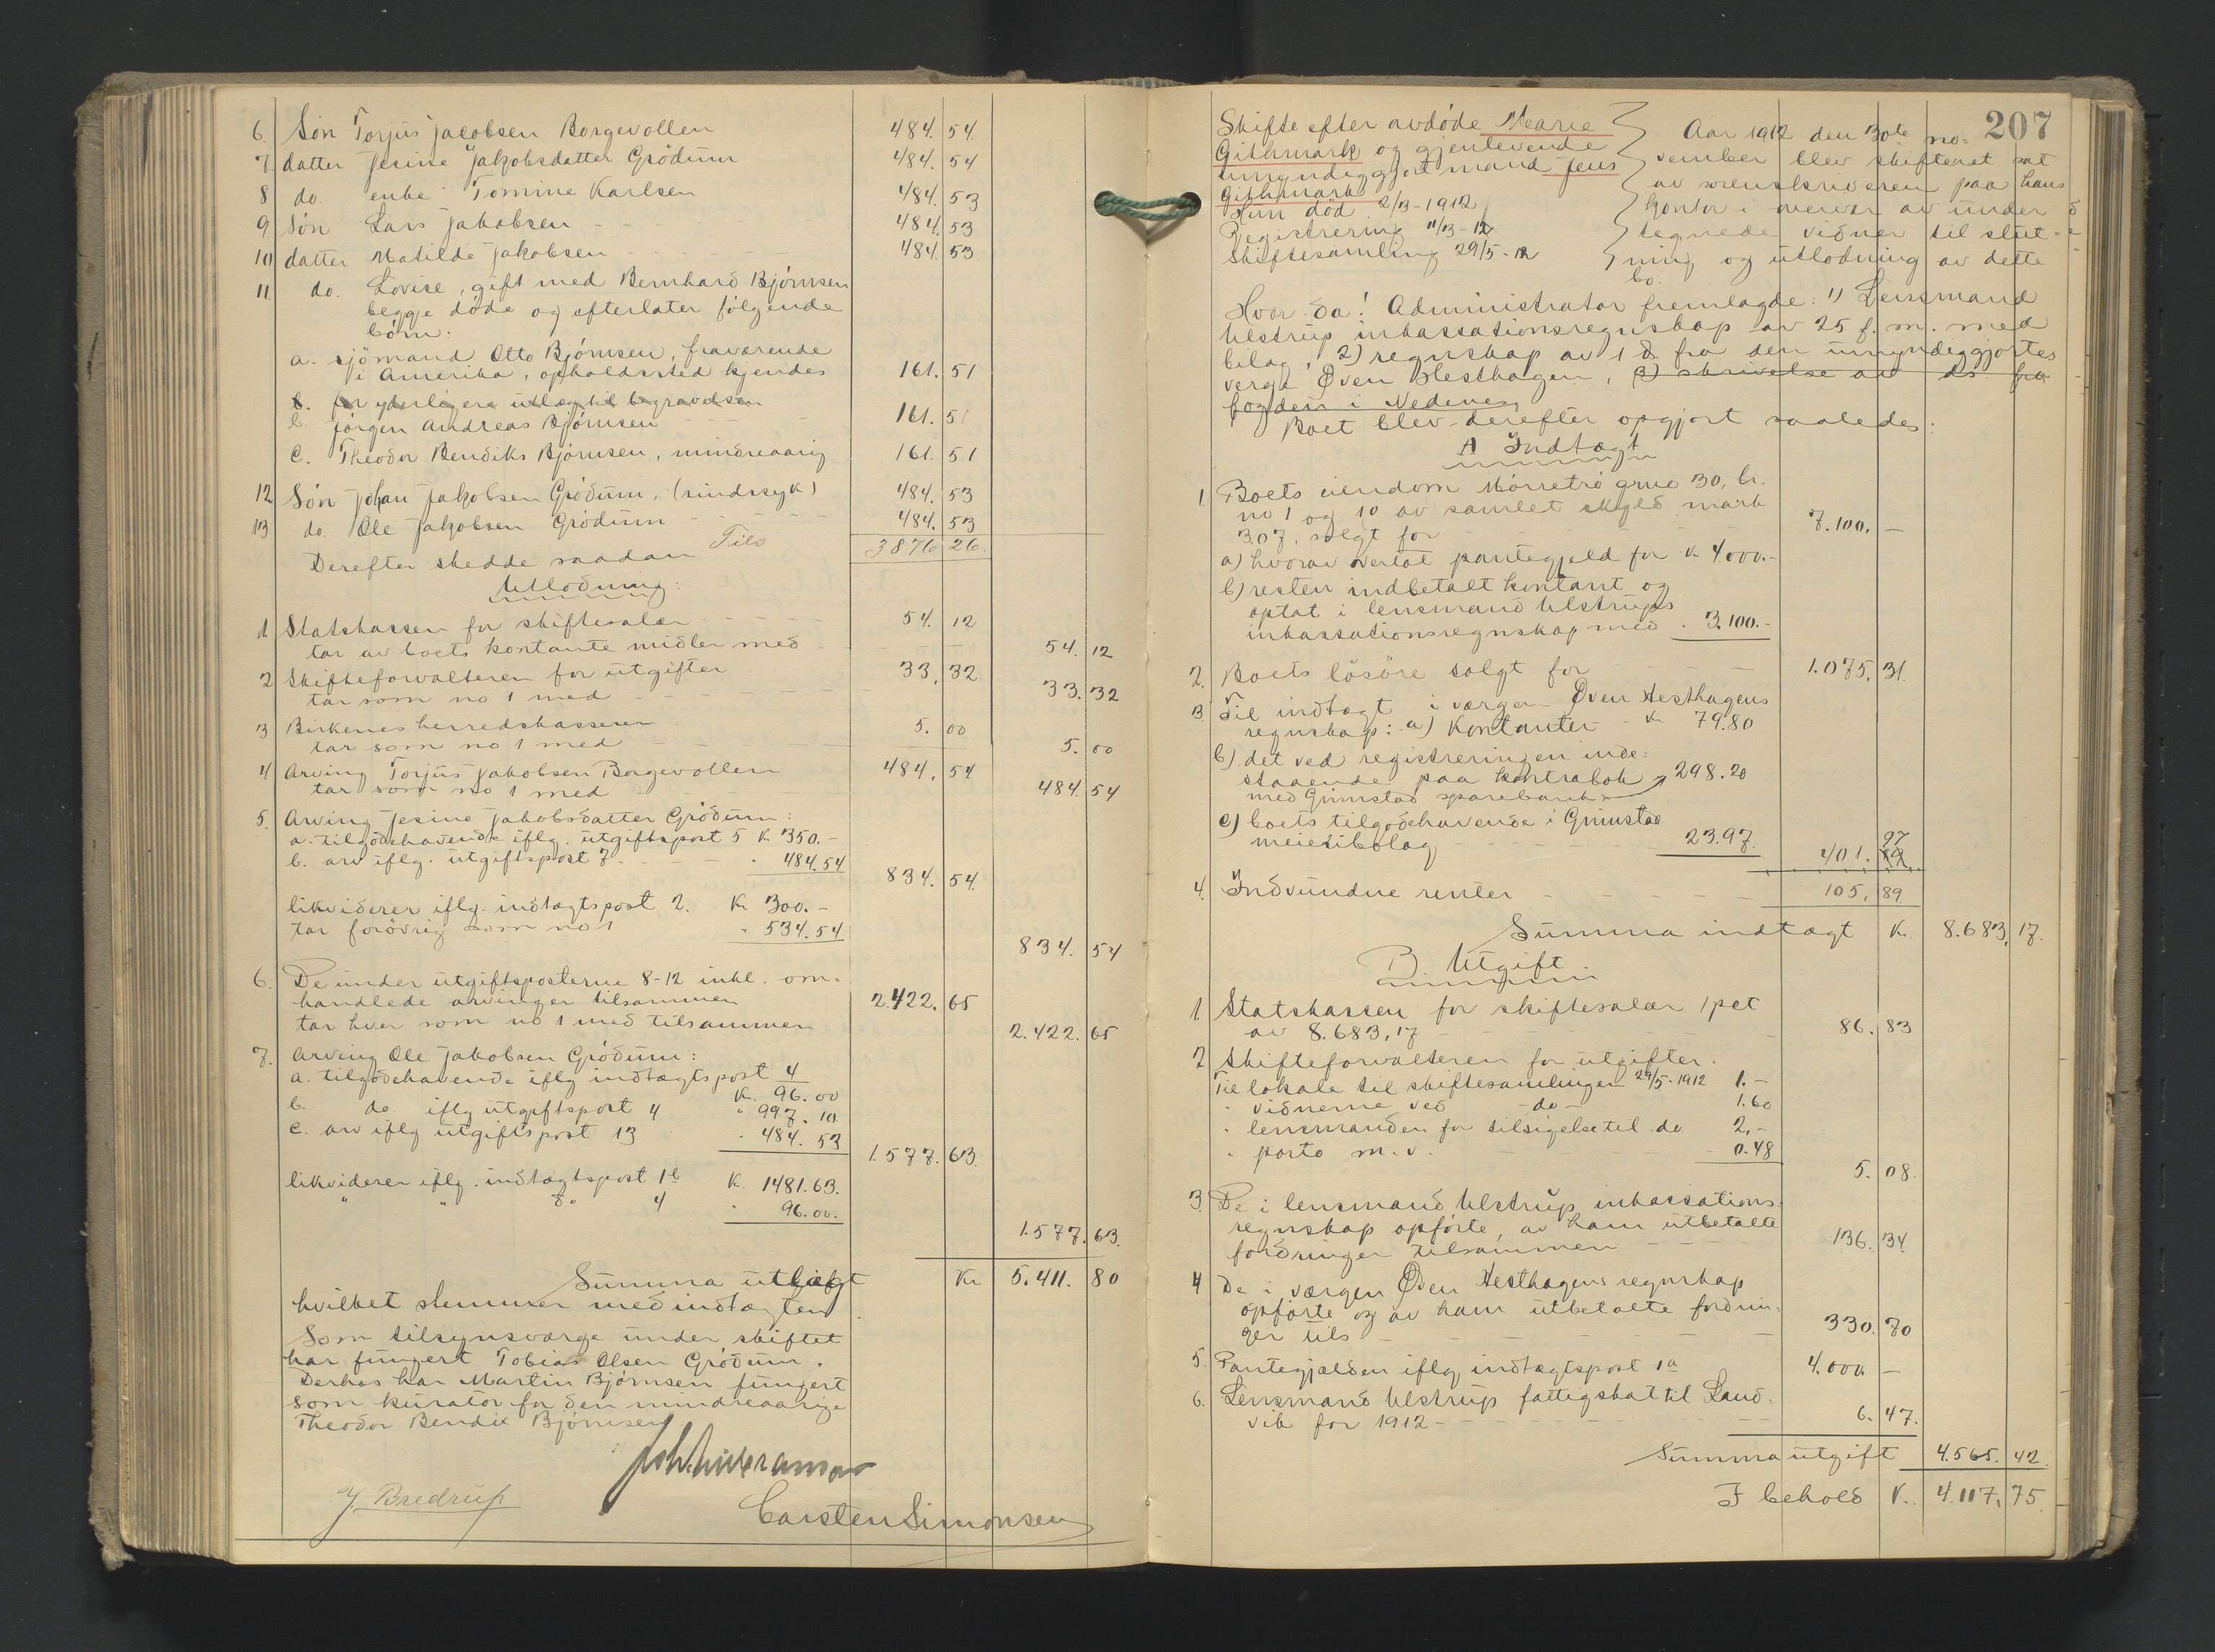 6. Søn Torjus Jacobsen Borgevollen 484. 54.
7. datter Jesine Jakobsdatter Grödum 484. 54
8 do. enke Tomine Karlsen 484. 53
9. Søn Lars Jakobsen - - - 484. 53
10 datter Matilde Jakobsen - - - 484. 53
11. do. Lovise, gift med Bernhard Björnsen
begge döde og efterlater følgende
börn:
a. sjömand Otto Björnsen, fraværende
i Amerika, opholdssted kjendes 161. 51
b. for yderligere utlæg til begravelsen
b. Jörgen Andreas Björnsen - - - 161. 51
C. Theodor Bendiks Björnsen, mindreaarig 161. 51
12. Søn Johan Jakobsen Grödum, (sindssyk) 484. 53
13 do. Ole Jakobsen Grödum - - - 484. 53
Tils 3876 26.
Derefter skedde saadan
Utlodning:
1 Statskassen for skiftesalær - - - 54. 12
tar av boets kontante midler med - - - 54. 12
2 Skifteforvalteren for utgifter 33. 32
tar som no 1 med - - - 33. 32
3 Birkenes herredskasserer 5. 00
tar som no 1 med - - - 5. 00
4 Arving Torjus Jakobsen Borgevollen 484. 54
tar som no 1 med - - - 484. 54
5. Arving Jesine Jakobsdatter Grödum:
a. tilgodehavende iflg. utgiftspost 5 K 350.-
b. arv iflg. utgiftspost 7 - - - " 484.54
834. 54.
likviderer iflg. indtægtspost 2. Kr 300.-
tar forövrig som no 1 " 534.54
834. 54
6. De under utgiftsposterne 8-12 inkl. om-
handlede arvinger tilsammen 2.422. 65
tar hver som no 1 med tilsammen 2.422. 65
7. Arving Ole Jakobsen Grödum:
a. tilgodehavende iflg indtægtspost 4
Kr. 96.00
b. do. iflg utgiftspost 4 " 997.10
c. arv iflg utgiftspost 13 " 484.53
1.577. 63.
likviderer iflg. indtægtspost 1b K. 1481.63.
" " do 4 " 96.00.
1.577. 63.
Summa utlagt Kr 5.411. 80
hvilket stemmer med indtægten
Som tilsynsværge under skiftet
har fungert Tobias Olsen Grödum.
Derhos har Martin Björnsen fungert
som kurator for den mindreaarige
Theodor Bendix Björnsen
J. Bredrup
Carsten Simonsen
207
Skifte efter avdöde Marie
Githmark og gjenlevende
umyndiggjort mand Jens
Githmark
Hun död 2/3-1912
Registrering 11/3-12
Skiftesamling 29/5-12
Aar 1912 den 30te no-
vember blev skifteret sat
av sorenskriveren paa hans
kontor i overvær av under
tegnede vidner til slut-
ning og utlodning av dette
bo.
Hvor da! Administrator fremlagde: 1) Lensmand
Ulstrup inkassationsregnskap av 25 f. m. med
bilag, 2) regnskap av 1 d. fra den umyndiggjortes
verge Øven Hesthagen, 3) skrivelse av ds fra
fogden i Nedenes
Boet blev derefter opgjort saaledes:
A Indtægt
1. Boets eiendom Mörretrö gno 30, br.
no 1 og 10 av samlet skyld mark
3.07, solgt for - - - 7.100. -
a) hvorav overtat pantegjeld for K. 4000.-
b) resten indbetalt kontant og
optat i lensmand Ulstrups
inkassationsregnskap med " 3.100.-
2. Boets lösöre solgt for - - - 1.075. 31.
3. Til indtægt i værgen Øven Hesthagens
regnskap: a) Kontanter - Kr 79.80
b) det ved registreringen inde-
staaende paa kontrabok " 298.20
med Grimstad sparebank
c) boets tilgodehavende i Grimstad
meieribolag 23.97.
401. 97
4. Indvundne renter - - - 105. 89
Summa indtægt Kr. 8.683. 17.
B. Utgift
1. Statskassen for skiftesalær 1 pct
av 8.683,17 - - - 86. 83
2 Skifteforvalteren for utgifter:
Til lokale til skiftesamlingen 29/5-1912 1.-
" vidnerne ved - do - 1.60
" lensmanden for tilsigelse til do 2.-
" porto m. v. - - - 0.48
5. 08.
3. De i lensmand Ulstrup inkassations-
regnskap opförte, av ham utbetalte
fordringer tilsammen - - - 136. 34.
4 De i værgen Øven Hesthagens regnskap
opförte og av ham utbetalte fordrin-
ger tils - - - 330. 70
5. Pantegjælden iflg indtægtspost 1a 4.000. -
6. Lensmand Ulstrup fattigskat til Land-
vik for 1912 - - - 6. 47.
Summa utgift 4.565. 42.
I behold K. 4.117. 75.